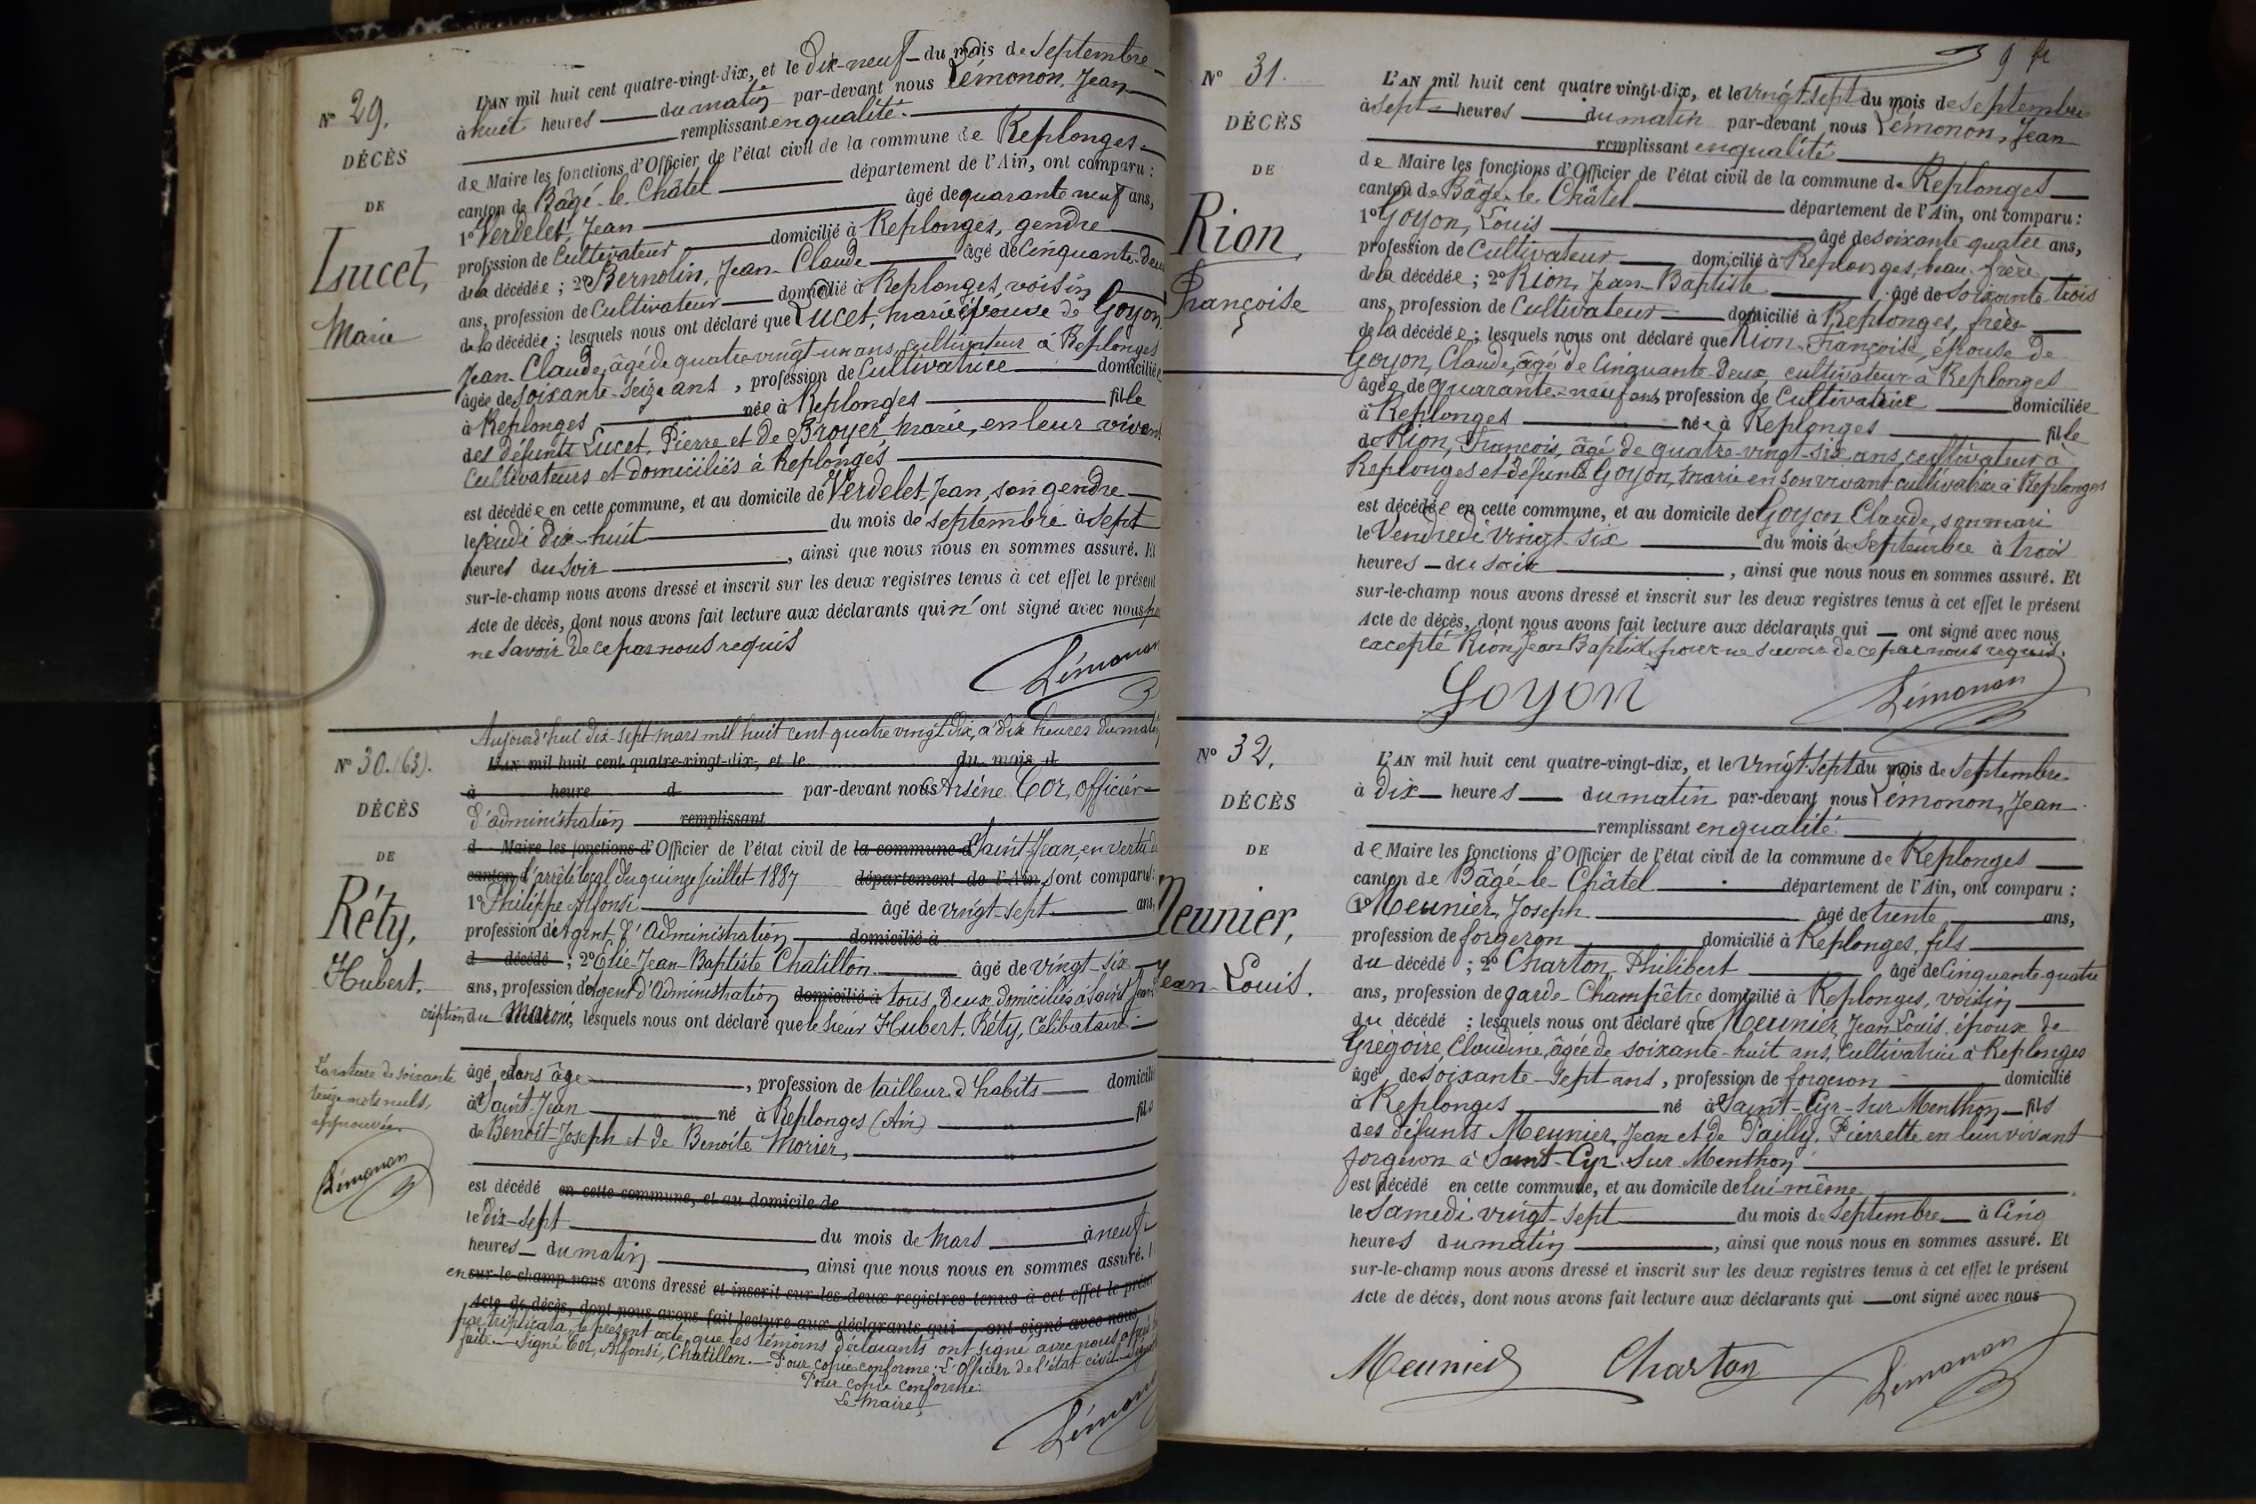 N° 29.
DÉCÈS
DE
Lucet,
Marie
L'AN mil huit cent quatre-vingt-dix, et le dix-neuf du mois de Septembre
à huit heures du matin par-devant nous Lémonon, Jean
remplissant en qualité
de Maire les fonctions d'Officier de l'état civil de la commune de Replonges
canton de Bâgé-le-Châtel département de l'Ain, ont comparu :
1° Verdelet Jean âgé de quarante neuf ans,
profession de Cultivateur domicilié à Replonges, gendre
de la décédée ; 2° Bernolin, Jean-Claude âgé de Cinquante-deux
ans, profession de Cultivateur domicilié à Replonges, voisin
de la décédée ; lesquels nous ont déclaré que Lucet, Marie épouse de Goyon,
Jean-Claude, âgé de quatre-vingt-un ans, cultivateur à Replonges
âgée de soixante-seize ans, profession de Cultivatrice domiciliée
à Replonges née à Replonges fille
des défunts Lucet, Pierre et de Broyer, Marie, en leur vivant
Cultivateurs et domiciliés à Replonges
est décédée en cette commune, et au domicile de Verdelet, Jean, son gendre
le jeudi dix-huit du mois de septembre à sept
heures du soir, ainsi que nous nous en sommes assuré. Et
sur-le-champ nous avons dressé et inscrit sur les deux registres tenus à cet effet le présent
Acte de décès, dont nous avons fait lecture aux déclarants qui n'ont signé avec nous
ne savoir de ce par nous requis
Lémonon
N° 30. (63).
DÉCÈS
DE
Réty,
Hubert.
Aujourd'hui dix-sept mars mil huit cent quatre vingt dix, à dix heures du matin
L'AN mil huit cent quatre-vingt-dix, et le du mois d
à heure d par-devant nous Arsène Cor, officier
d'administration remplissant
d Maire les fonctions d'Officier de l'état civil de la commune d Saint-Jean, en vertu de
canton d l'arrêté local du quinze juillet 1887 département de l'Ain, sont comparus :
1° Philippe Alfonsi âgé de vingt-sept ans,
profession d'Agent d'Administration domicilié à
d décédé ; 2° Elie-Jean-Baptiste Chatillon âgé de vingt-six
ans, profession d'agent d'Administration domicilié à tous deux domiciliés à Saint Jean
du Maroni, lesquels nous ont déclaré que le Sieur Hubert Réty, Célibataire
âgé dans âge, profession de tailleur d'habits domicilié
à Saint-Jean né à Replonges (Ain) fils
de Benoît-Joseph et de Benoite Morier,
est décédé en cette commune, et au domicile de
le dix-sept du mois de Mars à neuf
heures du matin, ainsi que nous nous en sommes assuré.
en sur-le-champ nous avons dressé et inscrit sur les deux registres tenus à cet effet le présent
Acte de décès, dont nous avons fait lecture aux déclarants qui ont signé avec nous
par triplicata, le présent acte, que les témoins déclarants ont signé avec nous après
faite. Signé Cor, Alfonsi, Chatillon. Pour copie conforme : L'Officier de l'état civil
Pour copie conforme :
Le Maire,
Lémonon
La rature de soixante
treize mots nuls,
approuvée.
Lémonon
9 fe
N° 31.
DÉCÈS
DE
Rion,
Françoise
L'AN mil huit cent quatre vingt-dix, et le vingt sept du mois de septembre
à sept heures du matin par-devant nous Lémonon, Jean
remplissant en qualité
de Maire les fonctions d'Officier de l'état civil de la commune de Replonges
canton de Bâgé-le-Châtel département de l'Ain, ont comparu :
1° Goyon, Louis âgé de soixante quatre ans,
profession de Cultivateur domicilié à Replonges, beau-frère
de la décédée ; 2° Rion, Jean-Baptiste âgé de soixante-trois
ans, profession de Cultivateur domicilié à Replonges, frère
de la décédée ; lesquels nous ont déclaré que Rion, Françoise, épouse de
Goyon, Claude, âgé de Cinquante-deux, cultivateur à Replonges
âgée de quarante-neuf ans, profession de Cultivatrice domiciliée
à Replonges née à Replonges fille
de Rion, François, âgé de quatre-vingt-six ans, cultivateur à
Replonges et défunte Goyon, Marie en son vivant cultivatrice à Replonges
est décédée en cette commune, et au domicile de Goyon Claude, son mari
le Vendredi vingt-six du mois de septembre à trois
heures du soir, ainsi que nous nous en sommes assuré. Et
sur-le-champ nous avons dressé et inscrit sur les deux registres tenus à cet effet le présent
Acte de décès, dont nous avons fait lecture aux déclarants qui ont signé avec nous
excepté Rion, Jean Baptiste pour ne savoir de ce par nous requis.
Goyon Lémonon
N° 32.
DÉCÈS
DE
Meunier,
Jean-Louis.
L'AN mil huit cent quatre-vingt-dix, et le vingt-sept du mois de septembre
à dix heures du matin par-devant nous Lémonon, Jean
remplissant en qualité
de Maire les fonctions d'Officier de l'état civil de la commune de Replonges
canton de Bâgé-le-Châtel département de l'Ain, ont comparu :
1° Meunier, Joseph âgé de trente ans,
profession de forgeron domicilié à Replonges, fils
du décédé ; 2° Charton, Philibert âgé de Cinquante-quatre
ans, profession de garde-Champêtre domicilié à Replonges, voisin
du décédé ; lesquels nous ont déclaré que Meunier, Jean-Louis, époux de
Grégoire, Claudine, âgée de soixante-huit ans, Cultivatrice à Replonges
âgé de soixante-sept ans, profession de forgeron domicilié
à Replonges né à Saint-Cyr-sur Menthon fils
des défunts Meunier, Jean et de Pailly, Pierrette en leur vivant
forgeron à Saint-Cyr-sur Menthon
est décédé en cette commune, et au domicile de lui même
le Samedi vingt-sept du mois de septembre à Cinq
heures du matin, ainsi que nous nous en sommes assuré. Et
sur-le-champ nous avons dressé et inscrit sur les deux registres tenus à cet effet le présent
Acte de décès, dont nous avons fait lecture aux déclarants qui ont signé avec nous
Meunier Charton Lémonon